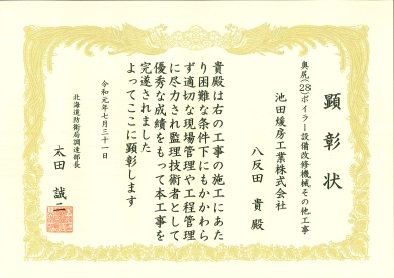 顕彰状
奥尻(28)ボイラー設備改修機械その他工事
池田煖房工業株式会社
八反田 貴 殿
貴殿は右の工事の施工にあた
り困難な条件下にもかかわら
ず適切な現場管理や工程管理
に尽力され監理技術者として
優秀な成績をもって本工事を
完遂されました
よってここに顕彰します
令和元年七月三十一日
北海道防衛局調達部長
太田 誠二